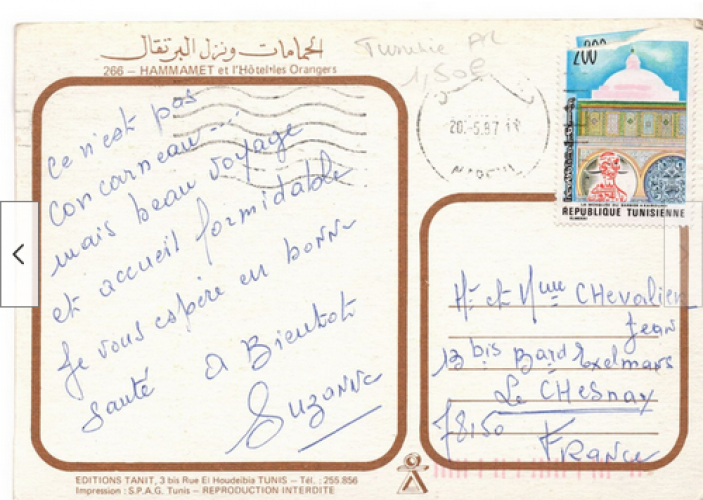 الحمامات ونزل البرتقال
266 – HAMMAMET et l'Hôtel•les Orangers
Tunisie
1,50€
20.-5.87
200
LA MOSQUEE DU BARBIER • KAIROUAN
REPUBLIQUE TUNISIENNE
Ce n'est pas
Concarneau...
mais beau voyage
et accueil formidable
Je vous espère en bonne
santé A Bientôt
Suzanne
Mr et Mme CHevalier
Jean
13 bis Bard Exelmans
Le CHesnay
78150
FRance
EDITIONS TANIT, 3 bis Rue El Houdeibia TUNIS – Tél. : 255.856
Impression : S.P.A.G. Tunis – REPRODUCTION INTERDITE